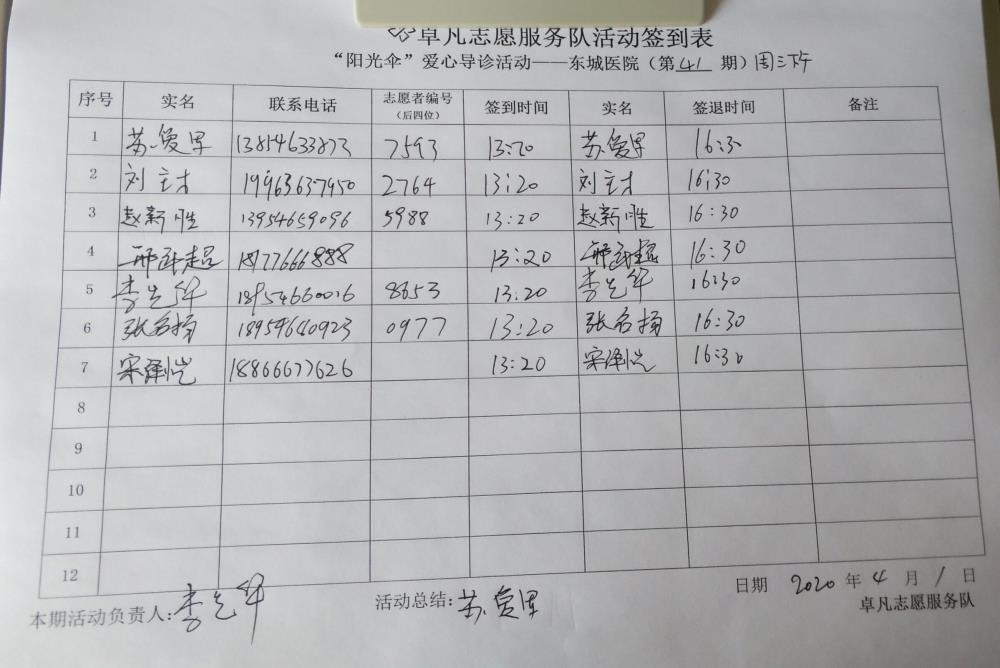 卓凡志愿服务队活动签到表
“阳光伞”爱心导诊活动——东城医院（第 41 期）周三下午
序号 实名 联系电话 志愿者编号（后四位） 签到时间 实名 签退时间 备注
1 苏爱军 13814633873 7593 13:20 苏爱军 16:30
2 刘主才 19963637950 2764 13:20 刘主才 16:30
3 赵新胜 13954659096 5988 13:20 赵新胜 16:30
4 18777666888 13:20 16:30
5 李先华 18954660016 8653 13:20 李先华 16:30
6 张名扬 18959640923 0977 13:20 张名扬 16:30
7 宋泽恺 18866677626 13:20 宋泽恺 16:30
8
9
10
11
12
本期活动负责人：李先华 活动总结：苏爱军 日期 2020 年 4 月 1 日
卓凡志愿服务队